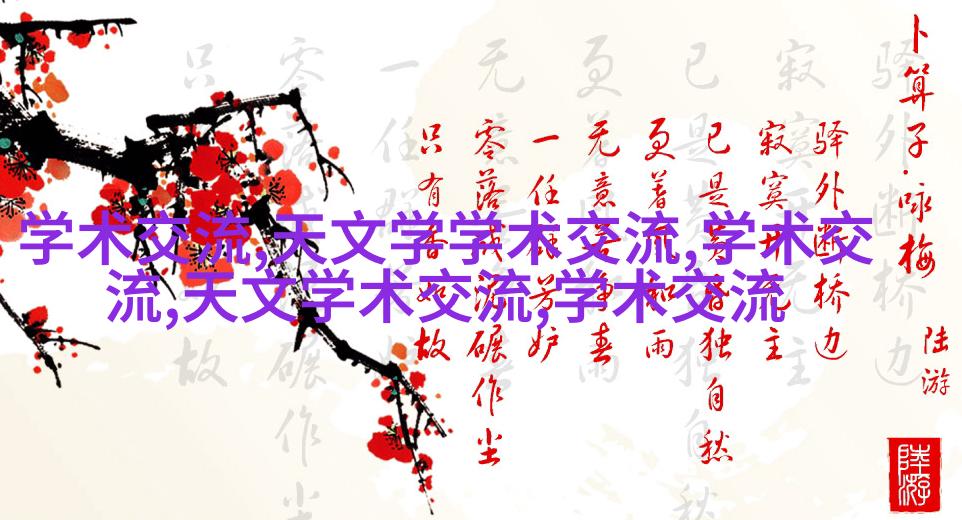 卜算子·咏梅
陆游
驿外断桥边
寂寞开无主
已是黄昏独自愁
更着风和雨
无意苦争春
一任群芳妒
零落成泥碾作尘
只有香如故
陆游
学术交流,天文学学术交流,学术交
流,天文学术交流,学术交流